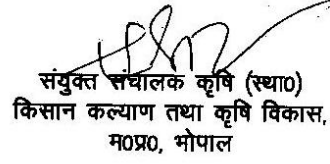 संयुक्त संचालक कृषि (स्था०)
किसान कल्याण तथा कृषि विकास,
म०प्र०, भोपाल